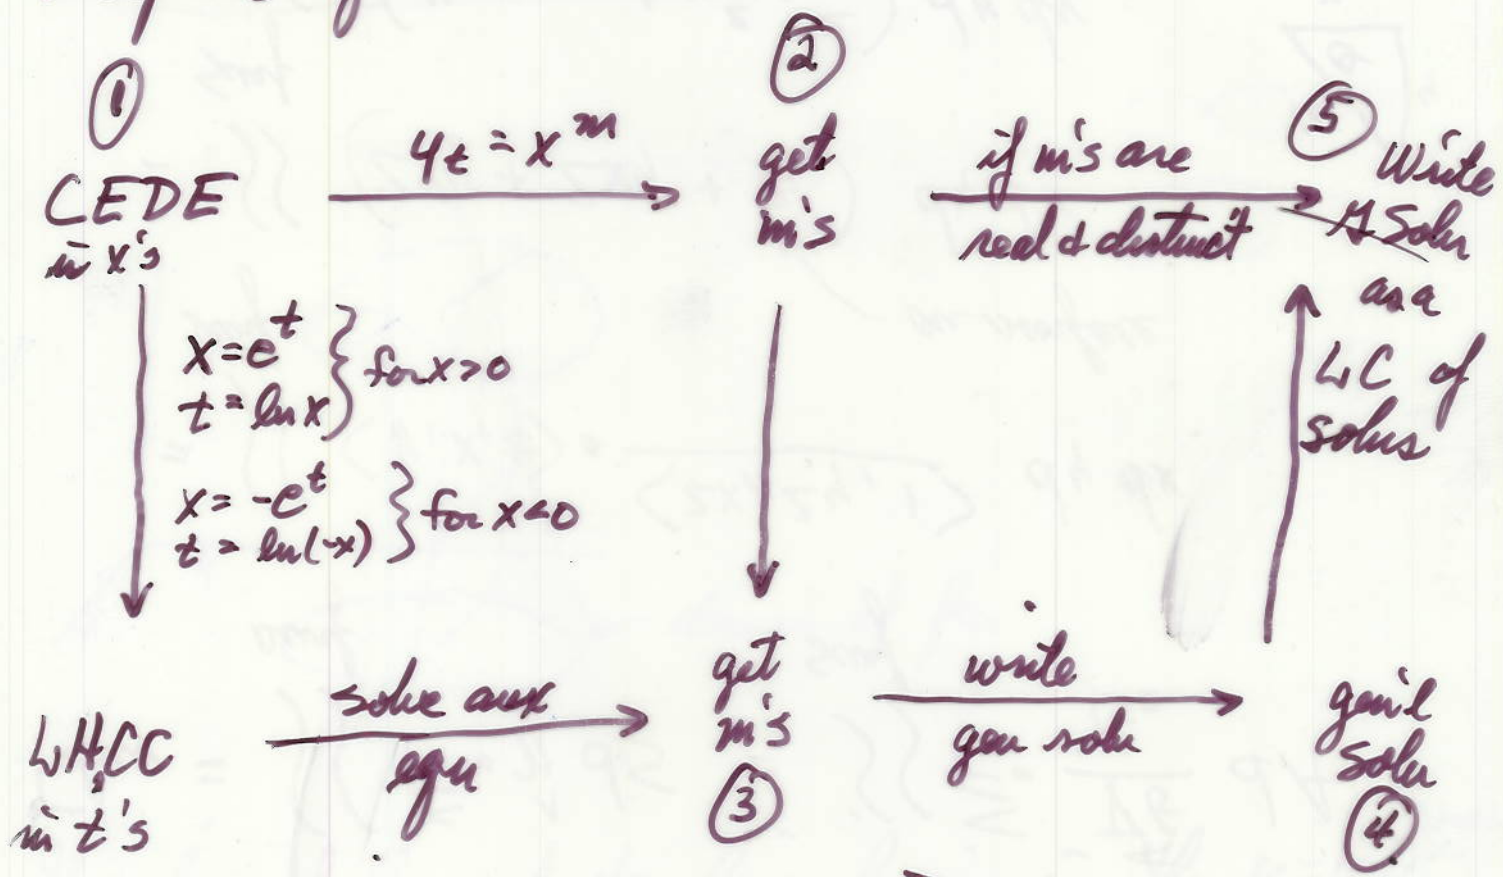 ①
CEDE
in x's
y_t = x^m
②
get
m's
if m's are
real & distinct
⑤ Write
Soln
as a
LC of
solns
x = e^t
t = ln x
} for x>0
x = -e^t
t = ln(-x)
} for x<0
LH,CC
in t's
solve aux
eqn
get
m's
③
write
gen soln
gen'l
soln
④